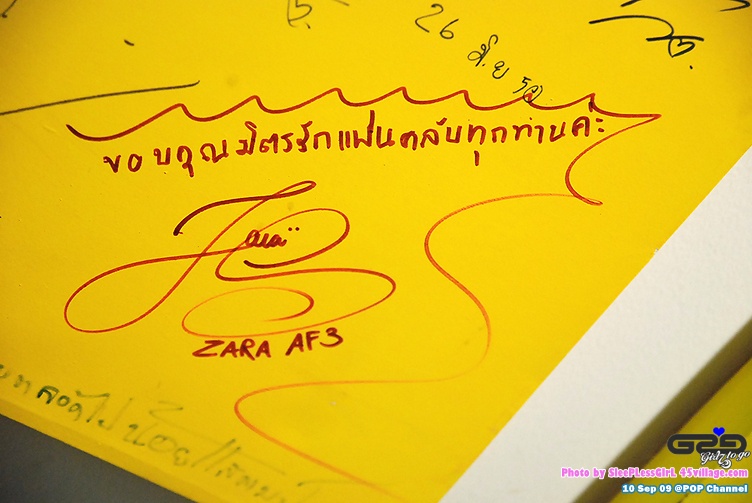 26 มิ.ย 52
ขอบคุณมิตรรักแฟนคลับทุกท่านค่ะ
Zara
ZARA AF3
G2G
Girlz to go
Photo by SleePLessGirL 45village.com
10 Sep 09 @POP Channel